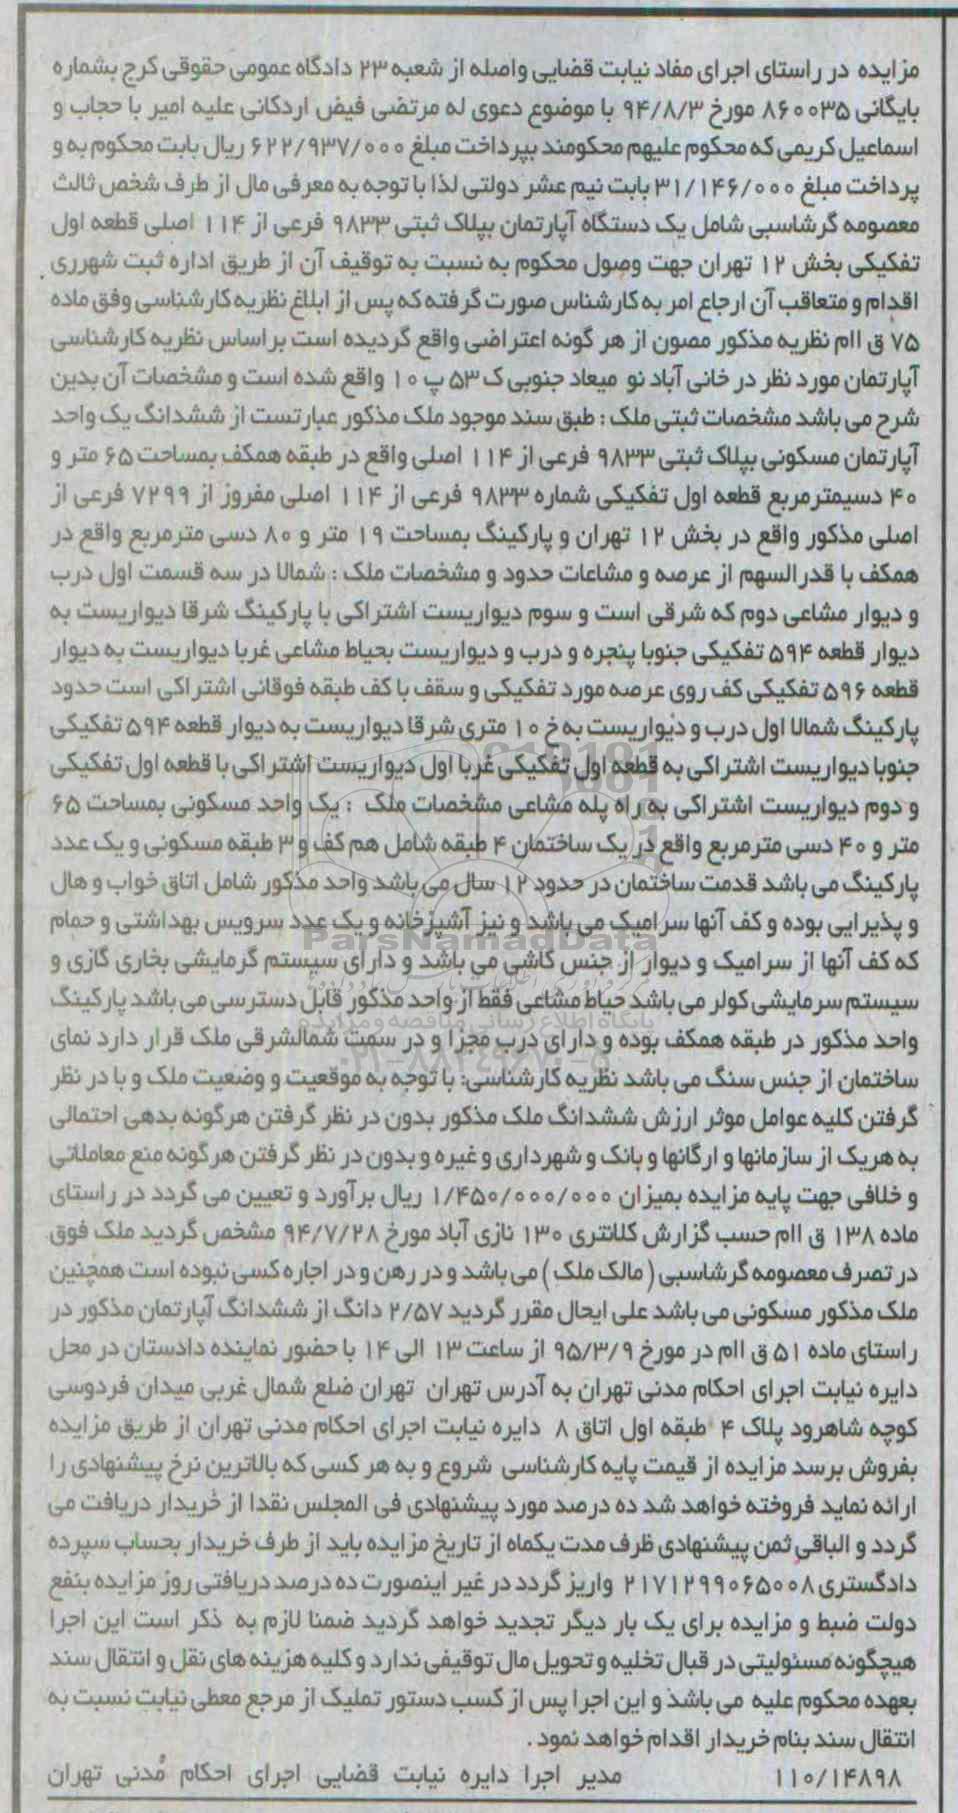 مزایده در راستای اجرای مفاد نیابت قضایی واصله از شعبه ۲۳ دادگاه عمومی حقوقی کرج بشماره
بایگانی ۸۶۰۰۳۵ مورخ ۹۴/۸/۳ با موضوع دعوی له مرتضی فیض اردکانی علیه امیر با حجاب و
اسماعیل کریمی که محکوم علیهم محکومند بپرداخت مبلغ ۶۲۲/۹۳۷/۰۰۰ ریال بابت محکوم به و
پرداخت مبلغ ۳۱/۱۴۶/۰۰۰ بابت نیم عشر دولتی لذا با توجه به معرفی مال از طرف شخص ثالث
معصومه گرشاسبی شامل یک دستگاه آپارتمان بپلاک ثبتی ۹۸۳۳ فرعی از ۱۱۴ اصلی قطعه اول
تفکیکی بخش ۱۲ تهران جهت وصول محکوم به نسبت به توقیف آن از طریق اداره ثبت شهرری
اقدام و متعاقب آن ارجاع امر به کارشناس صورت گرفته که پس از ابلاغ نظریه کارشناسی وفق ماده
۷۵ ق اام نظریه مذکور مصون از هر گونه اعتراضی واقع گردیده است براساس نظریه کارشناسی
آپارتمان مورد نظر در خانی آباد نو میعاد جنوبی ک ۵۳ پ ۱۰ واقع شده است و مشخصات آن بدین
شرح می باشد مشخصات ثبتی ملک : طبق سند موجود ملک مذکور عبارتست از ششدانگ یک واحد
آپارتمان مسکونی بپلاک ثبتی ۹۸۳۳ فرعی از ۱۱۴ اصلی واقع در طبقه همکف بمساحت ۶۵ متر و
۴۰ دسیمترمربع قطعه اول تفکیکی شماره ۹۸۳۳ فرعی از ۱۱۴ اصلی مفروز از ۷۲۹۹ فرعی از
اصلی مذکور واقع در بخش ۱۲ تهران و پارکینگ بمساحت ۱۹ متر و ۸۰ دسی مترمربع واقع در
همکف با قدرالسهم از عرصه و مشاعات حدود و مشخصات ملک : شمالا در سه قسمت اول درب
و دیوار مشاعی دوم که شرقی است و سوم دیواریست اشتراکی با پارکینگ شرقا دیواریست به
دیوار قطعه ۵۹۴ تفکیکی جنوبا پنجره و درب و دیواریست بحیاط مشاعی غربا دیواریست به دیوار
قطعه ۵۹۶ تفکیکی کف روی عرصه مورد تفکیکی و سقف با کف طبقه فوقانی اشتراکی است حدود
پارکینگ شمالا اول درب و دیواریست به خ ۱۰ متری شرقا دیواریست به دیوار قطعه ۵۹۴ تفکیکی
جنوبا دیواریست اشتراکی به قطعه اول تفکیکی غربا اول دیواریست اشتراکی با قطعه اول تفکیکی
و دوم دیواریست اشتراکی به راه پله مشاعی مشخصات ملک : یک واحد مسکونی بمساحت ۶۵
متر و ۴۰ دسی مترمربع واقع در یک ساختمان ۴ طبقه شامل هم کف و ۳ طبقه مسکونی و یک عدد
پارکینگ می باشد قدمت ساختمان در حدود ۱۲ سال می باشد واحد مذکور شامل اتاق خواب و هال
و پذیرایی بوده و کف آنها سرامیک می باشد و نیز آشپزخانه و یک عدد سرویس بهداشتی و حمام
ParsNamadData
که کف آنها از سرامیک و دیوار از جنس کاشی می باشد و دارای سیستم گرمایشی بخاری گازی و
سیستم سرمایشی کولر می باشد حیاط مشاعی فقط از واحد مذکور قابل دسترسی می باشد پارکینگ
پایگاه اطلاع رسانی مناقصه و مزایده
واحد مذکور در طبقه همکف بوده و دارای درب مجزا و در سمت شمالشرقی ملک قرار دارد نمای
۰۲۱-۸۸۳۴۹۶۷۰-۵
ساختمان از جنس سنگ می باشد نظریه کارشناسی: با توجه به موقعیت و وضعیت ملک و با در نظر
گرفتن کلیه عوامل موثر ارزش ششدانگ ملک مذکور بدون در نظر گرفتن هرگونه بدهی احتمالی
به هریک از سازمانها و ارگانها و بانک و شهرداری و غیره و بدون در نظر گرفتن هرگونه منع معاملاتی
و خلافی جهت پایه مزایده بمیزان ۱/۴۵۰/۰۰۰/۰۰۰ ریال برآورد و تعیین می گردد در راستای
ماده ۱۳۸ ق اام حسب گزارش کلانتری ۱۳۰ نازی آباد مورخ ۹۴/۷/۲۸ مشخص گردید ملک فوق
در تصرف معصومه گرشاسبی ( مالک ملک ) می باشد و در رهن و در اجاره کسی نبوده است همچنین
ملک مذکور مسکونی می باشد علی ایحال مقرر گردید ۲/۵۷ دانگ از ششدانگ آپارتمان مذکور در
راستای ماده ۵۱ ق اام در مورخ ۹۵/۳/۹ از ساعت ۱۳ الی ۱۴ با حضور نماینده دادستان در محل
دایره نیابت اجرای احکام مدنی تهران به آدرس تهران تهران ضلع شمال غربی میدان فردوسی
کوچه شاهرود پلاک ۴ طبقه اول اتاق ۸ دایره نیابت اجرای احکام مدنی تهران از طریق مزایده
بفروش برسد مزایده از قیمت پایه کارشناسی شروع و به هر کسی که بالاترین نرخ پیشنهادی را
ارائه نماید فروخته خواهد شد ده درصد مورد پیشنهادی فی المجلس نقدا از خریدار دریافت می
گردد و الباقی ثمن پیشنهادی ظرف مدت یکماه از تاریخ مزایده باید از طرف خریدار بحساب سپرده
دادگستری ۲۱۷۱۲۹۹۰۶۵۰۰۸ واریز گردد در غیر اینصورت ده درصد دریافتی روز مزایده بنفع
دولت ضبط و مزایده برای یک بار دیگر تجدید خواهد گردید ضمنا لازم به ذکر است این اجرا
هیچگونه مسئولیتی در قبال تخلیه و تحویل مال توقیفی ندارد و کلیه هزینه های نقل و انتقال سند
بعهده محکوم علیه می باشد و این اجرا پس از کسب دستور تملیک از مرجع معطی نیابت نسبت به
انتقال سند بنام خریدار اقدام خواهد نمود .
۱۱۰/۱۴۸۹۸ مدیر اجرا دایره نیابت قضایی اجرای احکام مدنی تهران